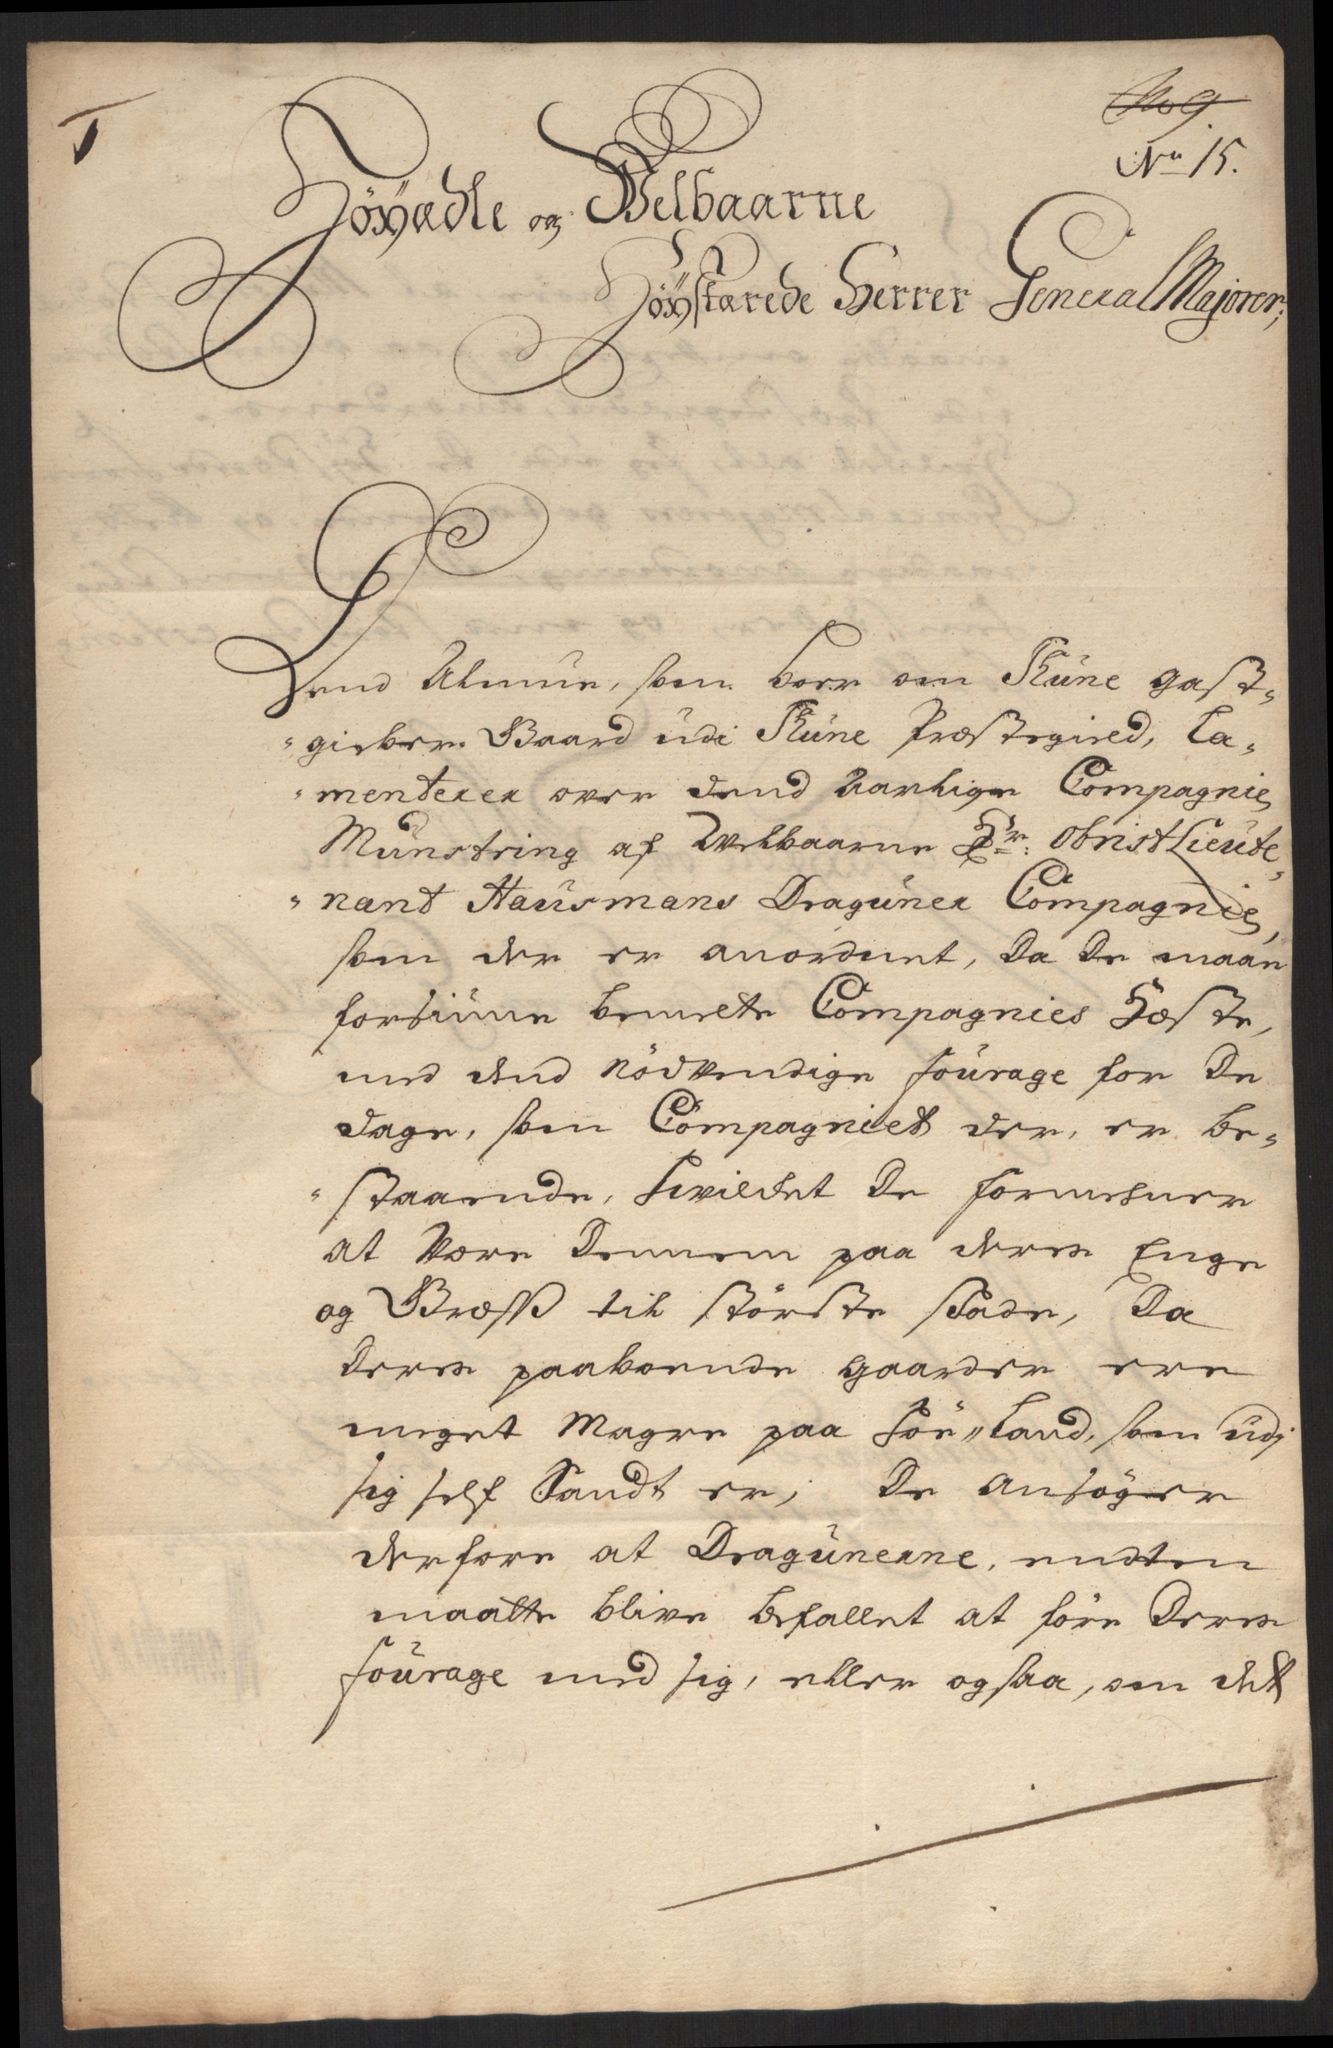 No 9
No 15.
Höÿædle og Welbaarne
Höÿstærede Herrer General Majorer,
Dend Almue, som boer om Skúne gast-
gieber Gaard udi Skúne Præstegield, la-
menterer over dend Aarlige Compagnie
Múnstring af Welbaarne Hr: ObristLieúte-
nant Haúsmans Dragúner Compagnie,
som der er anordnet, da de maae
forsiúne bemelte Compagnies Hæste,
med dend nödvendige foúrage for de
dage, som Compagniet der, er be-
staaende, hvilchet de formehner
at være dennem paa deres Enge
og Græss til störste skade, da
deres paaboende gaarder ere
meget Magre paa höe-land, som udj
sig self Sandt er, de ansöger
derfore at Dragúnerne, endten
maatte blive befallet at före deres
foúrage med sig, eller ogsaa, om det